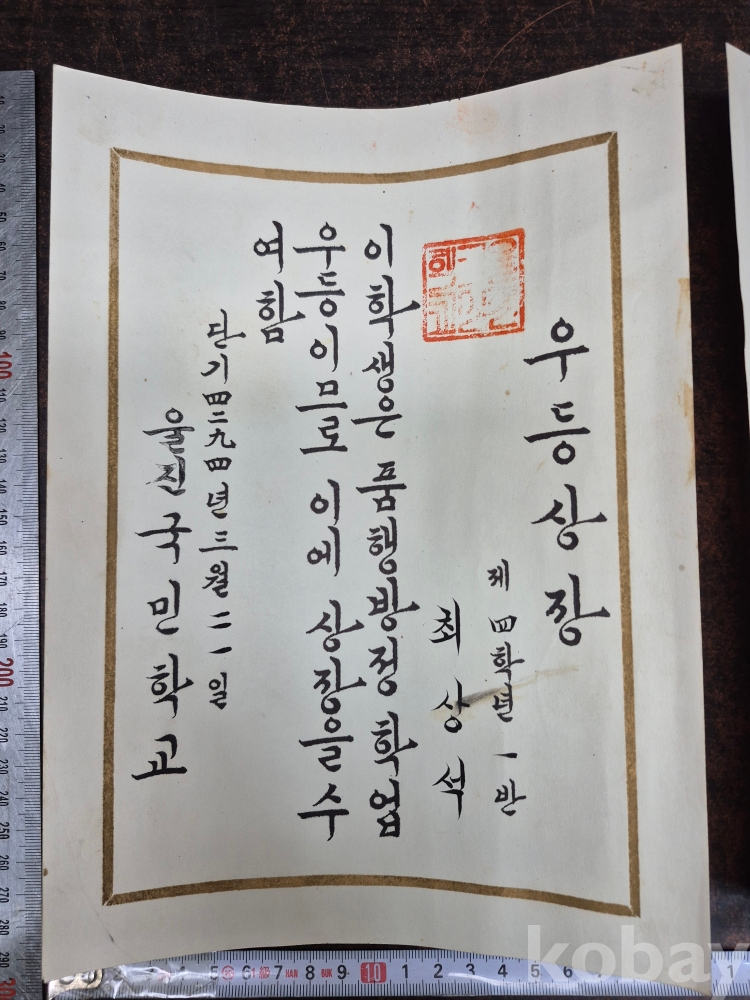 우등상장
제四학년 一반
최상석
이 학생은 품행방정 학업
우등이므로 이에 상장을 수
여함
단기四二九四년 三월 二一일
울진국민학교
kobay